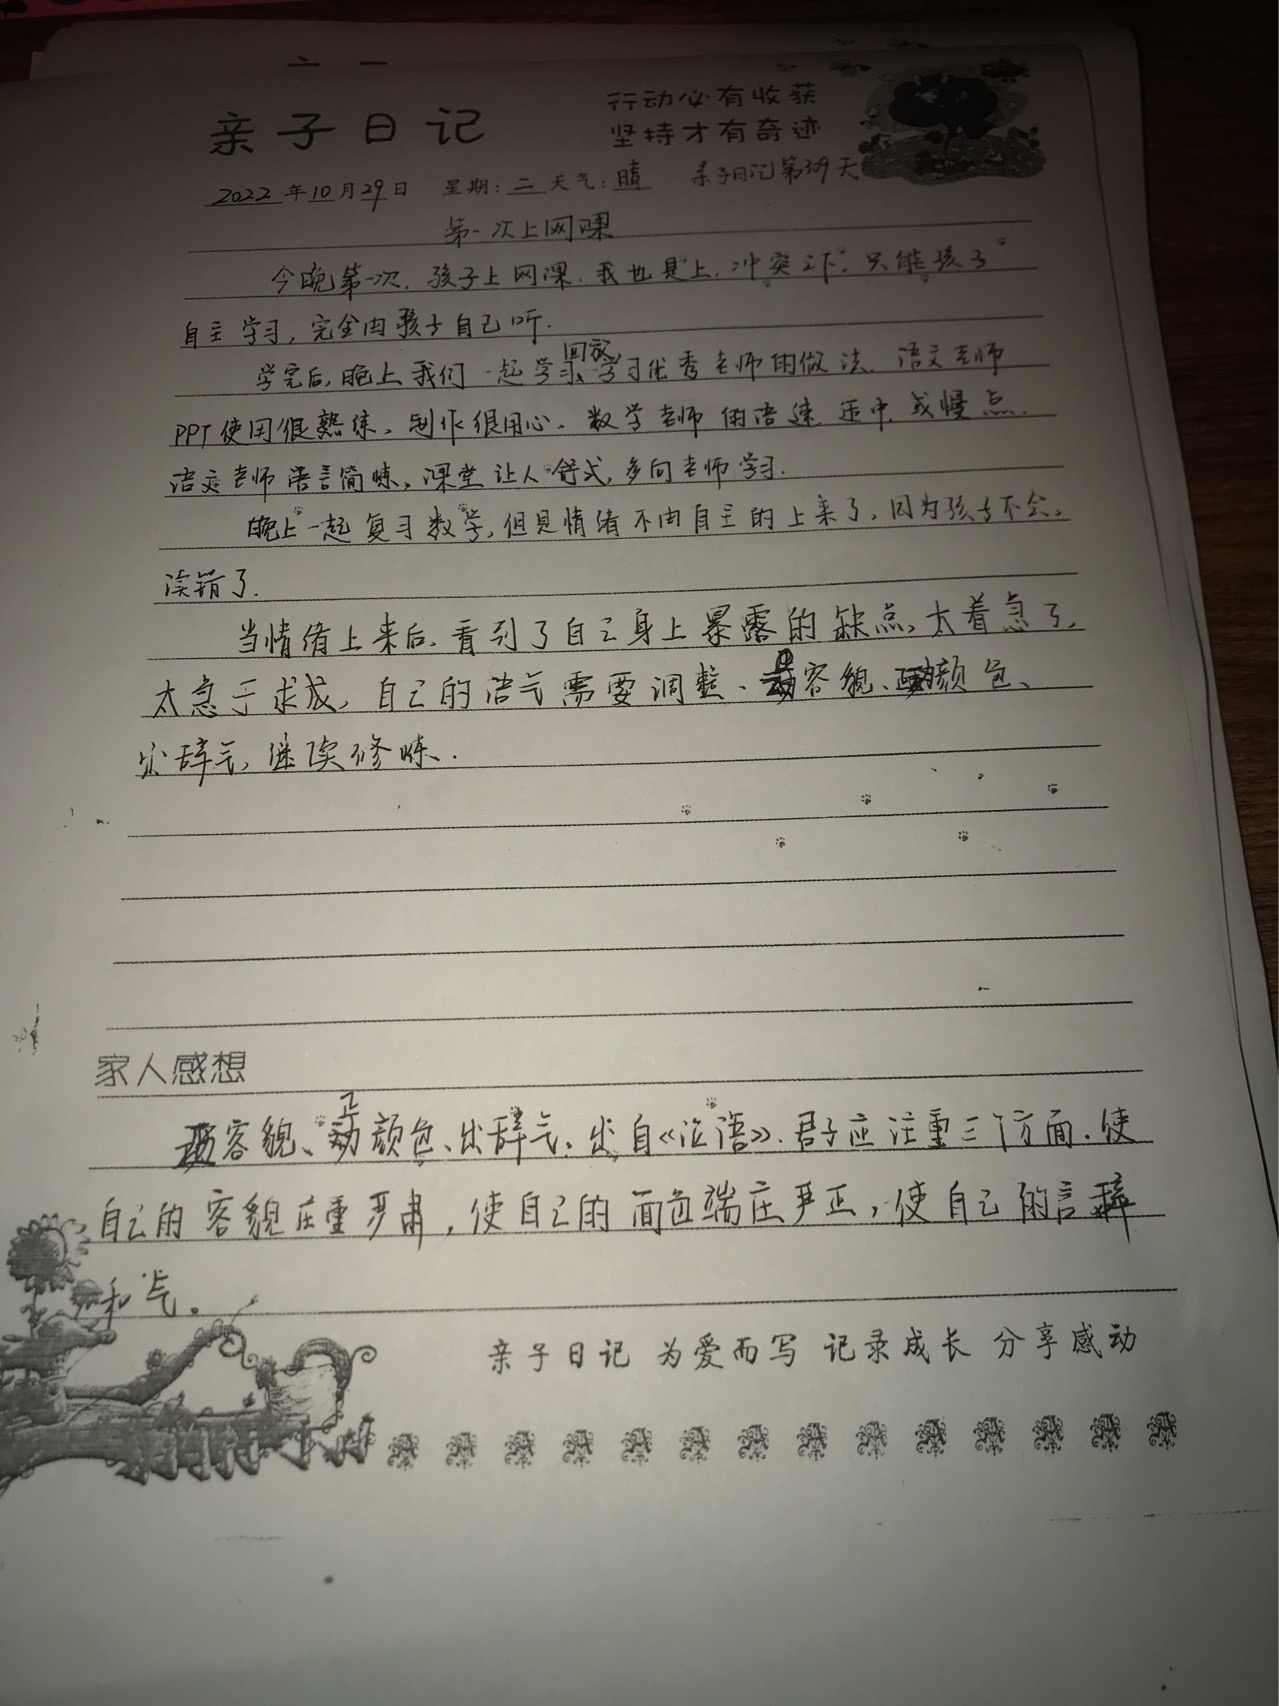 亲子日记
行动必有收获
坚持才有奇迹
2022年10月29日 星期:二 天气:晴 亲子日记第309天
第一次上网课
今晚第一次,孩子上网课,我也是上,冲突之下,只能孩子
自主学习,完全由孩子自己听.
学完后,晚上我们一起学习回放,学习优秀老师的做法,语文老师
PPT使用很熟练,制作很用心,数学老师的语速适中,或慢点.
语文老师语言简炼,课堂让人舒式,多向老师学习.
晚上一起复习数学,但是情绪不由自主的上来了,因为孩子不会,
读错了.
当情绪上来后,看到了自己身上暴露的缺点,太着急了,
太急于求成,自己的语气需要调整、动容貌、正颜色、
出辞气,继续修炼.
家人感想
动容貌、正颜色、出辞气,出自《论语》.君子应注重三个方面.使
自己的容貌庄重严肃,使自己的面色端庄严正,使自己的言辞
和气。
亲子日记 为爱而写 记录成长 分享感动